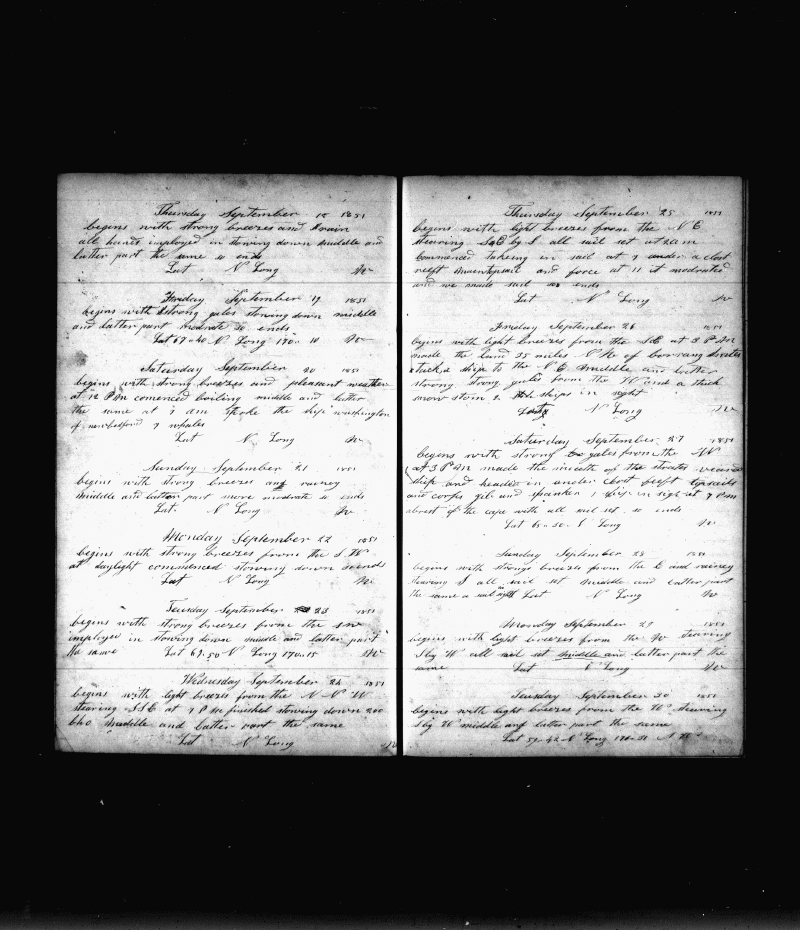 Thursday September 18 1851
begins with strong breezes and rain
all hands imployed in stowing down middle and
latter part the same so ends
Lat N Long W
Friday September 19 1851
begins with strong gales stowing down middle
and latter part moderate so ends
Lat 67-40 N Long 170-10 W
Saturday September 20 1851
begins with strong breezes and pleasant weather
at 12 P m comenced boiling middle and latter
the same at 7 am spoke the ship washington
of newbedford 7 whales
Lat N Long W
Sunday September 21 1851
begins with strong breezes and rainey
middle and latter part more moderate so ends
Lat N Long W
Monday September 22 1851
begins with strong breezes from the S W
at daylight commenced stowing down
Lat N Long W
Tuesday September 23 1851
begins with strong breezes from the
imployed in stowing down middle and latter part
the same Lat 69-50 N Long 170-15 W
Wednesday September 24 1851
begins with light breezes from the N N W
stearing SSE at 7 P M finished stowing down 200
bbo middle and latter part the same
Lat N Long W
Thursday September 25 1851
begins with light breezes from the N E
stearing by S all sail set at 2 am
commenced takeing in sail at 7 under a close
reeft maintopsail and force at 11 it modrated
and we made sail so ends
Lat N Long W
Friday September 26 1851
begins with light breezes from the at 3 P M
made the land 35 miles of
tackd ship to the N E middle and latter
strong strong gales from the W and a thick
snow storm 2 ships in sight
Lat N Long W
Saturday September 27 1851
begins with strong gales from the
at 3 P M made the mouth of the
ship and headed in under close reeft topsails
and corps gib and spanker 1 ship in sight at 7 P m
abrest of the cape with all sail set so ends
Lat N Long W
Sunday September 28 1851
begins with strong breezes from the E and rainey
stearing S all sail set middle and latter part
the same a sail in sight Lat N Long W
Monday September 29 1851
begins with light breezes from the stearing
S by W all sail set middle and latter part the
same Lat N Long W
Tuesday September 30 1851
begins with light breezes from the W stearing
S by W middle and latter part the same
Lat 59-42 N Long